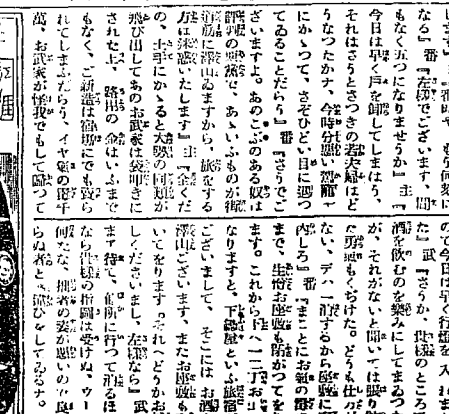 なる』番『左様でございます、間
もなく五つになりませうか』主『
今日は早く戸を卸してしまはう、
それはさうとさつきの若夫婦はど
うなつたかナ、今時分悪い駕籠
にかゝつて、さぞひどい目に遇つ
てゐることだらう』番『さうでご
ざいますよ。あのこぶのある奴は
評判の悪党で、あゝいふものが街
道筋に澤山ゐますから、旅をする
方は迷惑いたします』主『全くだ
の、土手にかゝると大勢の同類が
飛び出してあのお武家は袋叩きに
された上、路用の金はいふまで
もなく、ご新造は宿場にでも賣ら
れてしまふだらう、イヤ
萬、お武家が怪我でもして帰つて
ので今日は早く行燈を入れま
た』武『さうか、貴様のところで
酒を飲むのを楽みにしてまゐつ
が、それがないと聞いては張り
た勇氣もくぢけた。どうも仕方
ない、デハ一泊するから座敷に
内しろ』番『まことにお氣の毒
まで、生憎お座敷も塞がつてを
ます。これから一二丁お出
なりますと、下總屋といふ旅宿
ございまして、そこにはお酒
澤山ございます、またお座敷も
いてをります。それへどうかお
しくださいまし、左様なら』武
まア待て、何所に行つて泊るほ
なら貴様の指圖は受けぬ。ウー
何だな、拙者の姿が悪いので
らぬ者と疑ひをしてゐるナ。